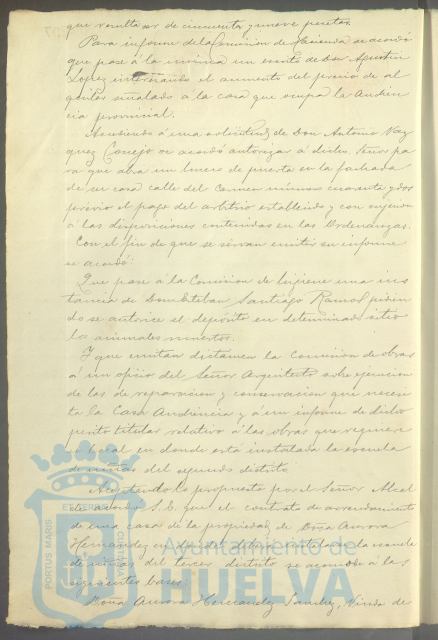 que resulta ser de cincuenta y nueve pesetas.
Para informe de la Comision de Hacienda se acordó
que pase á la misma un escrito de Don Agustin
Lopez interesando el aumento del precio de al
quiler señalado á la casa que ocupa la Audien
cia provincial.
Accediendo á una solicitud de Don Antonio Vaz
quez Conejo se acordó autorizar á dicho Señor pa
ra que abra un hueco de puerta en la fachada
de su casa calle del Carmen número cuarenta y dos
previo el pago del arbitrio establecido y con sujecion
á las disposiciones contenidas en las Ordenanzas.
Con el fin de que se sirvan emitir su informe
se acordó:
Que pase á la Comision de higiene una ins
tancia de Don Esteban Santiago Ramos pidien
do se autorice el depósito en determinado sitio
los animales muertos.
Y que emitan dictámen la comision de obras
á un oficio del Señor Arquitecto sobre ejecucion
de las de reparacion y conservacion que necesi
ta la Casa Audiencia y á un informe de dicho
perito titular relativo á las obras que requiere
el local en donde está instalada la escuela
de niñas del segundo distrito
Aceptando lo propuesto por el Señor Alcal
de acordó S.E. que el contrato de arrendamiento
de una casa de la propiedad de Doña Aurora
Hernandez en donde está instalada la escuela
de niñas del tercer distrito se acomode á las
siguientes bases:
Doña Aurora Hernandez Sanchez, Viuda de
PORTUS MARIS
ET TERRAE
CUSTODIA
Ayuntamiento de
HUELVA